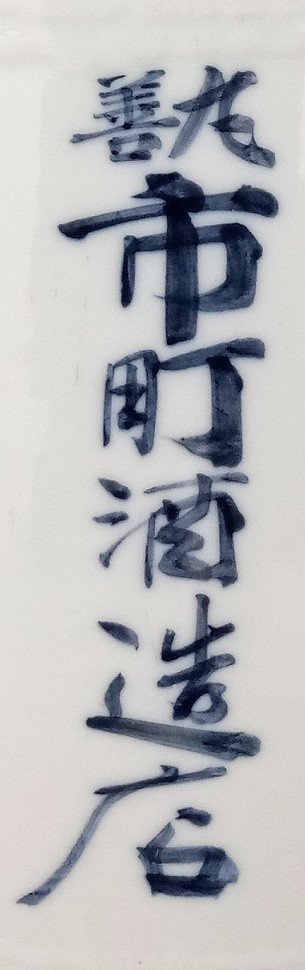 善
市町酒造店